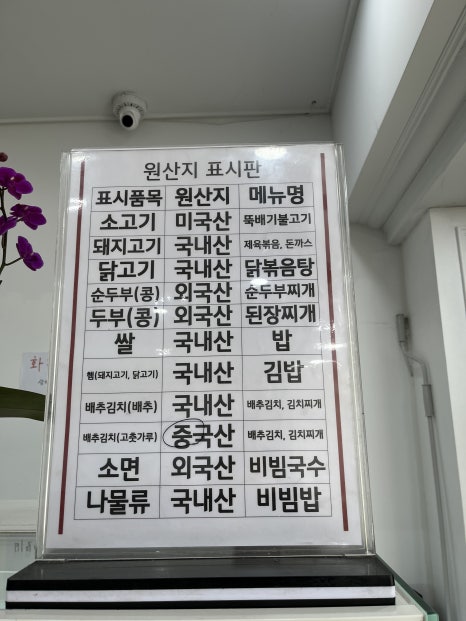 원산지 표시판
표시품목 원산지 메뉴명
소고기 미국산 뚝배기불고기
돼지고기 국내산 제육볶음, 돈까스
닭고기 국내산 닭볶음탕
순두부(콩) 외국산 순두부찌개
두부(콩) 외국산 된장찌개
쌀 국내산 밥
햄(돼지고기, 닭고기) 국내산 김밥
배추김치(배추) 국내산 배추김치, 김치찌개
배추김치(고춧가루) 중국산 배추김치, 김치찌개
소면 외국산 비빔국수
나물류 국내산 비빔밥